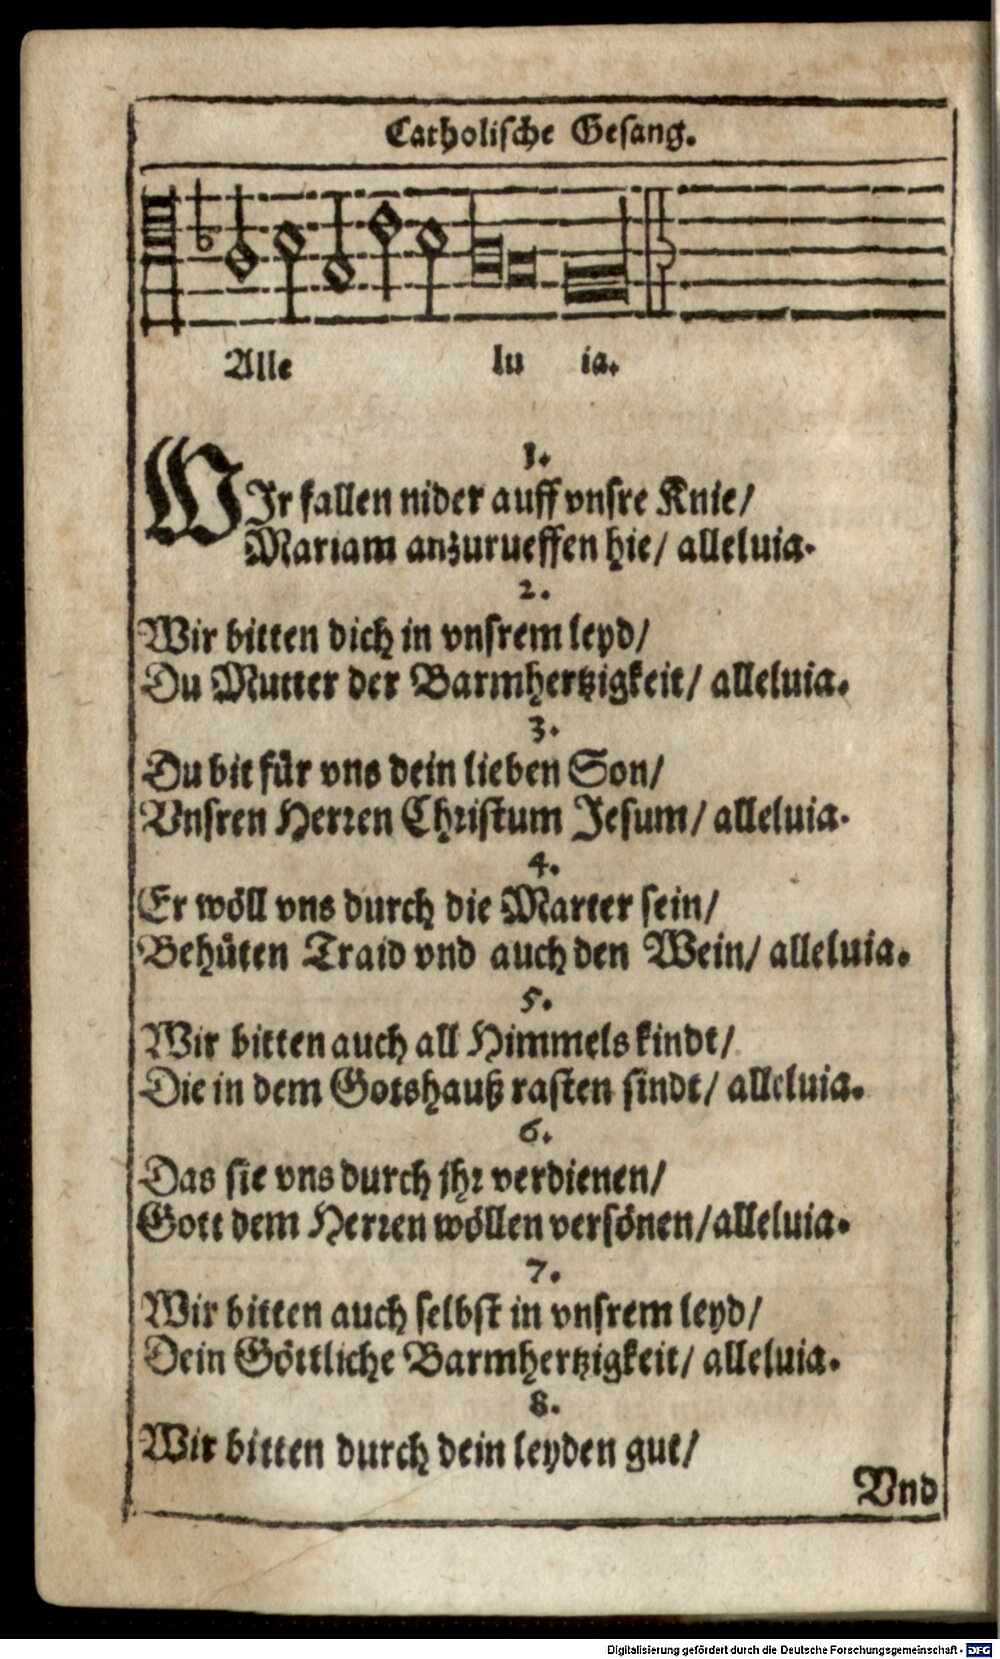 Catholische Gesang.
Alle lu ia.
1.
WIr fallen nider auff vnsre Knie/
Mariam anzurueffen hie/ alleluia.
2.
Wir bitten dich in vnsrem leyd/
Du Mutter der Barmhertzigkeit/ alleluia.
3.
Du bit für vns dein lieben Son/
Vnsren Herren Christum Jesum/ alleluia.
4.
Er wöll vns durch die Marter sein/
Behüten Traid vnd auch den Wein/ alleluia.
5.
Wir bitten auch all Himmels kindt/
Die in dem Gotshauß rasten sindt/ alleluia.
6.
Das sie vns durch jhr verdienen/
Gott dem Herren wöllen versönen/ alleluia.
7.
Wir bitten auch selbst in vnsrem leyd/
Dein Göttliche Barmhertzigkeit/ alleluia.
8.
Wir bitten durch dein leyden gut/
Vnd
Digitalisierung gefördert durch die Deutsche Forschungsgemeinschaft - DFG